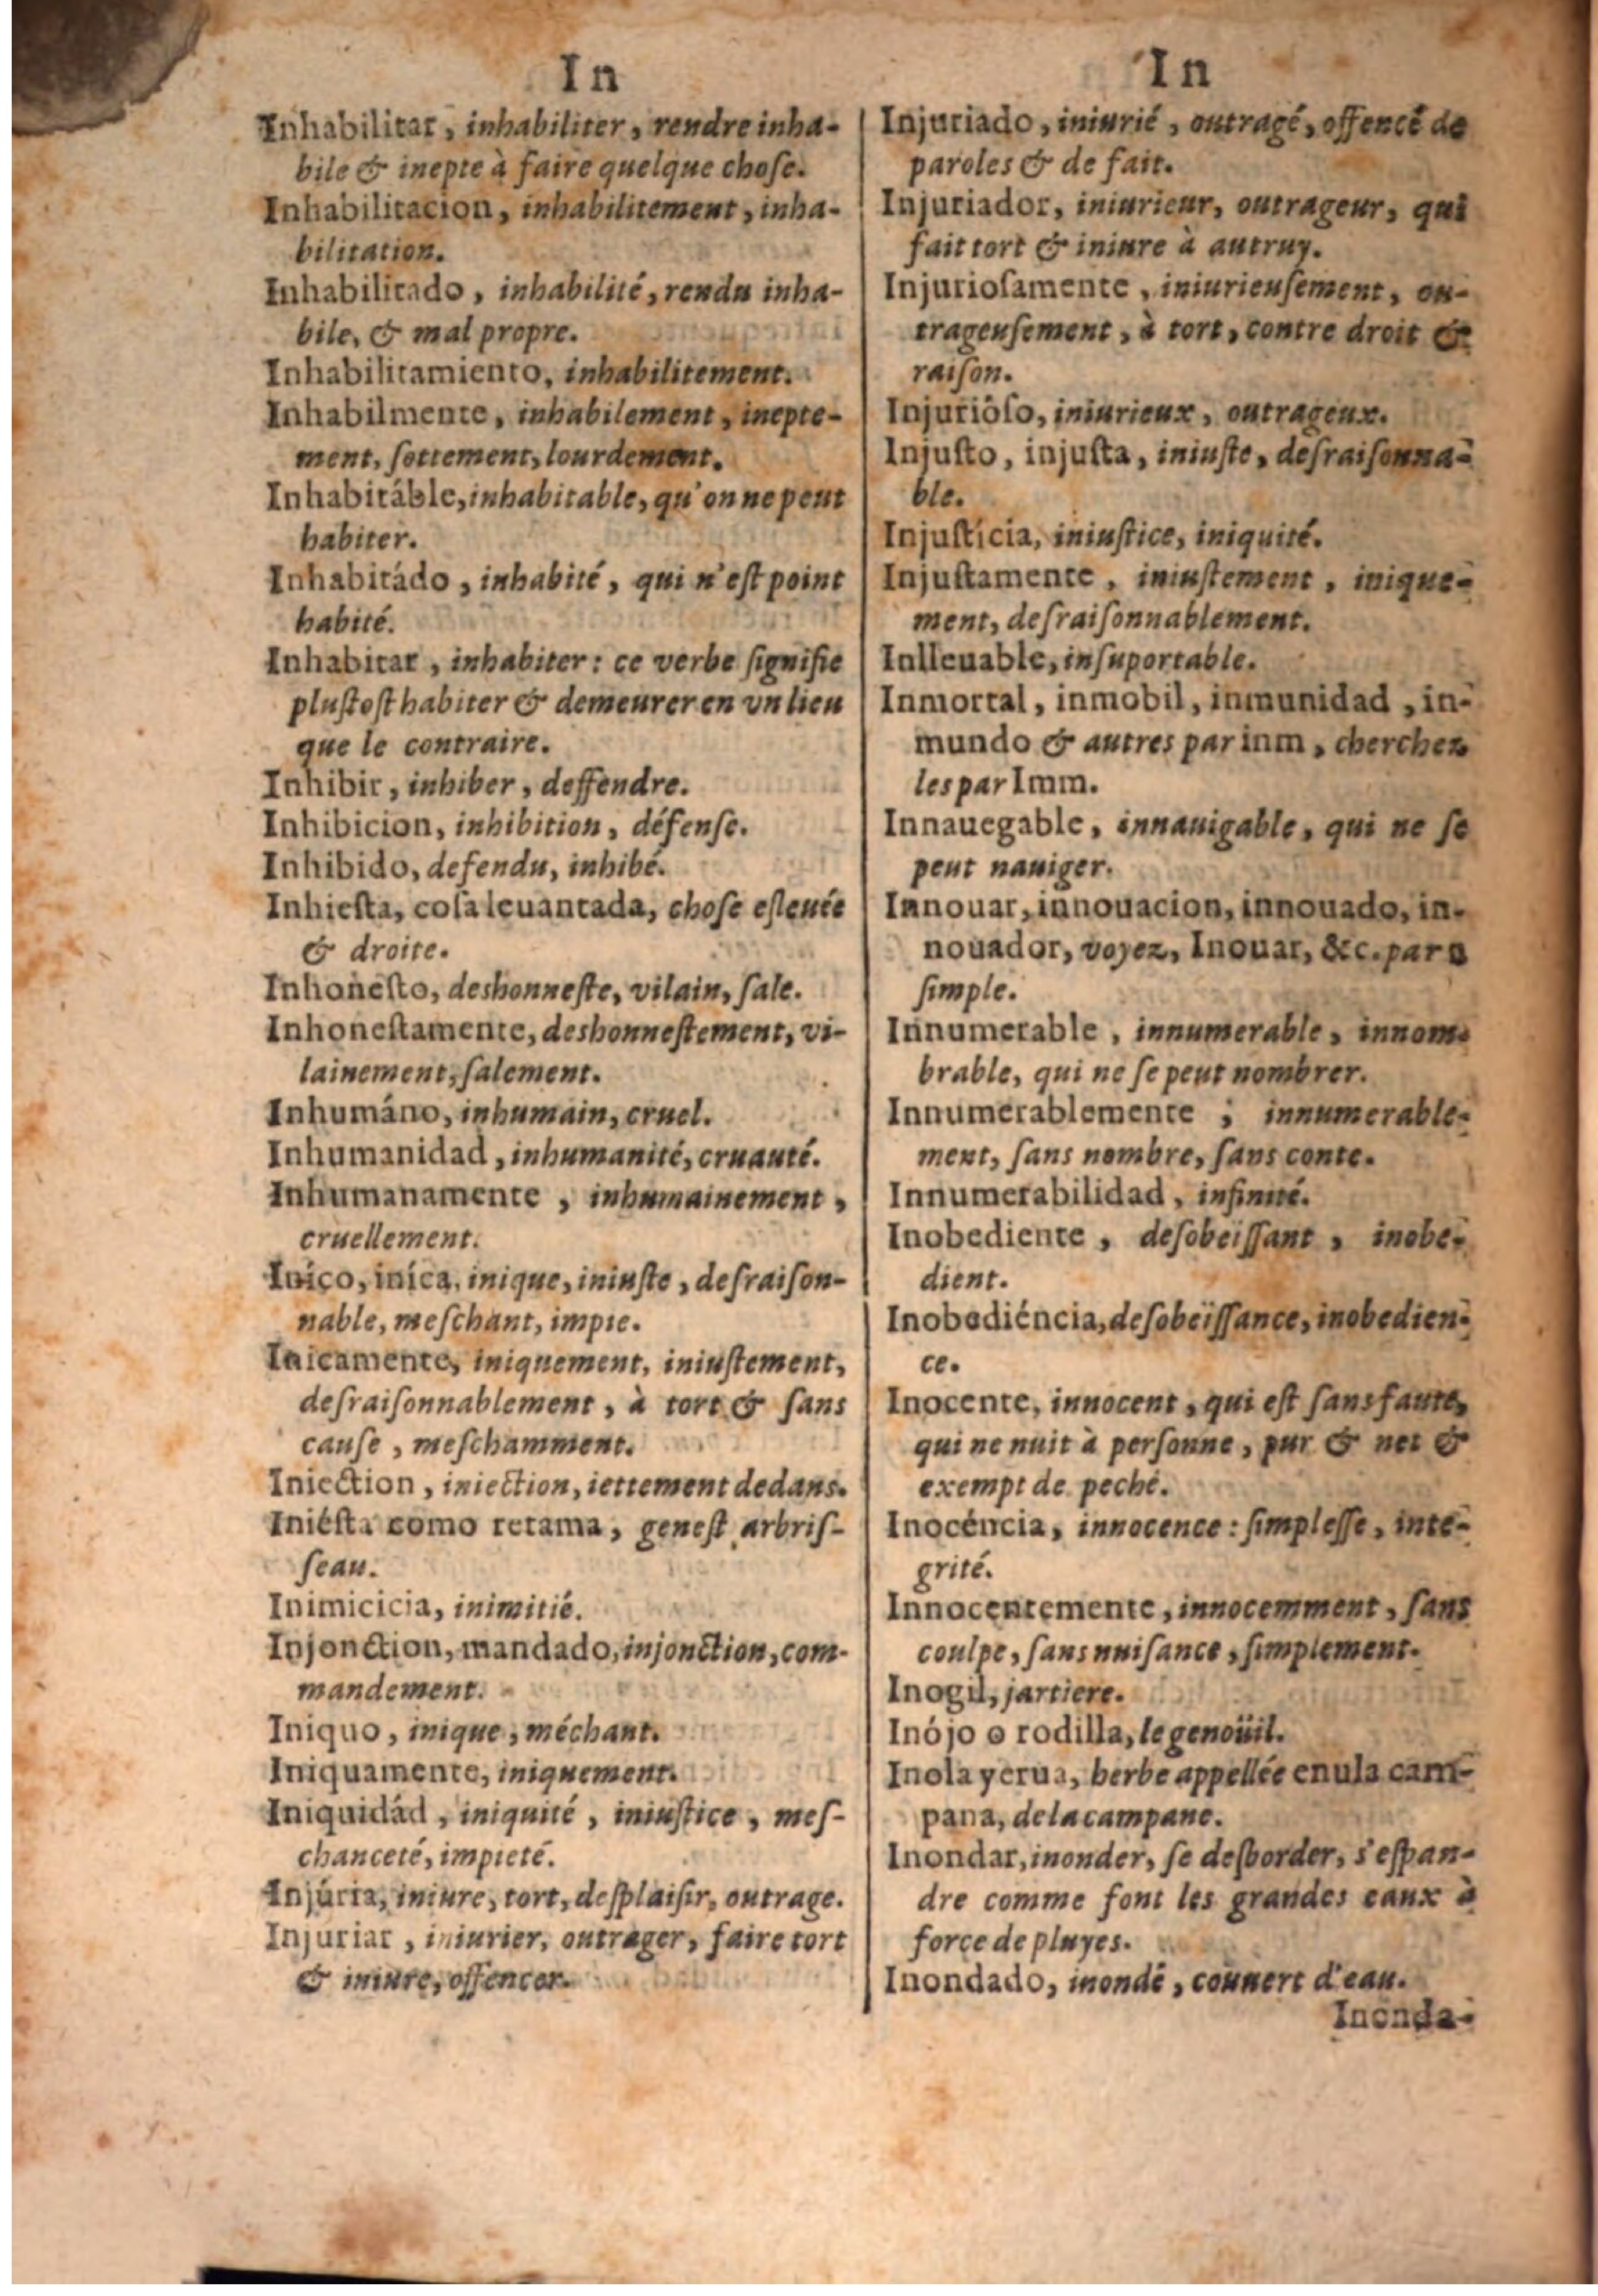 In
Inhabilitar, inhabiliter, rendre inha-
bile & inepte à faire quelque choſe.
Inhabilitacion, inhabilitement, inha-
bilitation.
Inhabilitado, inhabilité, rendu inha-
bile, & mal propre.
Inhabilitamiento, inhabilitement.
Inhabilmente, inhabilement, inepte-
ment, ſottement, lourdement.
Inhabitáble, inhabitable, qu'on ne peut
habiter.
Inhabitádo, inhabité, qui n'eſt point
habité.
Inhabitar, inhabiter: ce verbe ſignifie
pluſtoſt habiter & demeurer en vn lieu
que le contraire.
Inhibir, inhiber, deffendre.
Inhibicion, inhibition, défenſe.
Inhibido, defendu, inhibé.
Inhieſta, coſa leuantada, choſe eſleuée
& droite.
Inhoneſto, deshonneſte, vilain, ſale.
Inhoneſtamente, deshonneſtement, vi-
lainement, ſalement.
Inhumáno, inhumain, cruel.
Inhumanidad, inhumanité, cruauté.
Inhumanamente, inhumainement,
cruellement.
Iníco, iníca, inique, iniuſte, deſraiſon-
nable, meſchant, impie.
Inicamente, iniquement, iniuſtement,
deſraiſonnablement, à tort & ſans
cauſe, meſchamment.
Iniection, iniection, iettement dedans.
Iniéſta como retama, geneſt arbriſ-
ſeau.
Inimicicia, inimitié.
Injonction, mandado, injonction, com-
mandement.
Iniquo, inique, méchant.
Iniquamente, iniquement.
Iniquidád, iniquité, iniuſtice, meſ-
chanceté, impieté.
Injúria, iniure, tort, deſplaiſir, outrage.
Injuriar, iniurier, outrager, faire tort
& iniure, offencer.
In
Injuriado, iniurié, outragé, offencé de
paroles & de fait.
Injuriador, iniurieur, outrageur, qui
fait tort & iniure à autruy.
Injurioſamente, iniurieuſement, ou-
trageuſement, à tort, contre droit &
raiſon.
Injuriôſo, iniurieux, outrageux.
Injuſto, injuſta, iniuſte, deſraiſonna-
ble.
Injuſticia, iniuſtice, iniquité.
Injuſtamente, iniuſtement, inique-
ment, deſraiſonnablement.
Inlleuable, inſuportable.
Inmortal, inmobil, inmunidad, in-
mundo & autres par inm, cherchez
les par Imm.
Innauegable, innauigable, qui ne ſe
peut nauiger.
Innouar, innouacion, innouado, in-
nouador, voyez, Inouar, &c. par n
ſimple.
Innumerable, innumerable, innom-
brable, qui ne ſe peut nombrer.
Innumerablemente, innumerable-
ment, ſans nombre, ſans conte.
Innumerabilidad, infinité.
Inobediente, deſobeïſſant, inobe-
dient.
Inobediéncia, deſobeïſſance, inobedien-
ce.
Inocente, innocent, qui eſt ſans faute,
qui ne nuit à perſonne, pur & net &
exempt de peché.
Inocéncia, innocence: ſimpleſſe, inte-
grité.
Innocentemente, innocemment, ſans
coulpe, ſans nuiſance, ſimplement.
Inogil, jartiere.
Inójo o rodilla, le genoüil.
Inola yerua, herbe appellée enula cam-
pana, de la campane.
Inondar, inonder, ſe deſborder, s'eſpan-
dre comme font les grandes eaux à
force de pluyes.
Inondado, inondé, couuert d'eau.
Inonda-